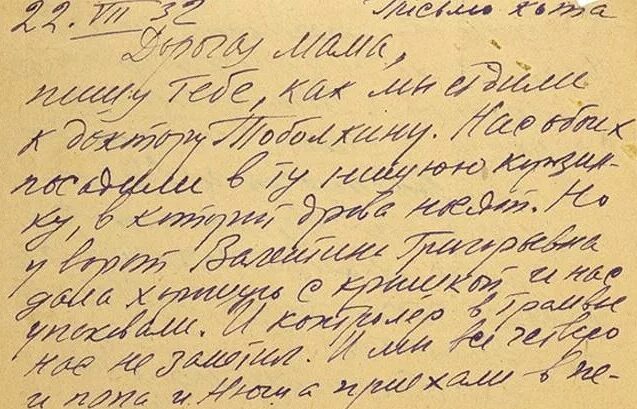 22. VII 32 Письмо кота
Дорогая мама,
пишу тебе, как мы ездили
к доктору Тоболкину. Нас обоих
посадили в ту нишую корзин-
ку, в которой дрова носят. Но
у ворот Валентина Григорьевна
дала хорошую с крышкой и нас
упаковали. И контролёр в трамвае
нас не заметил. И мы все четверо
и папа и Нюша приехали в ле-